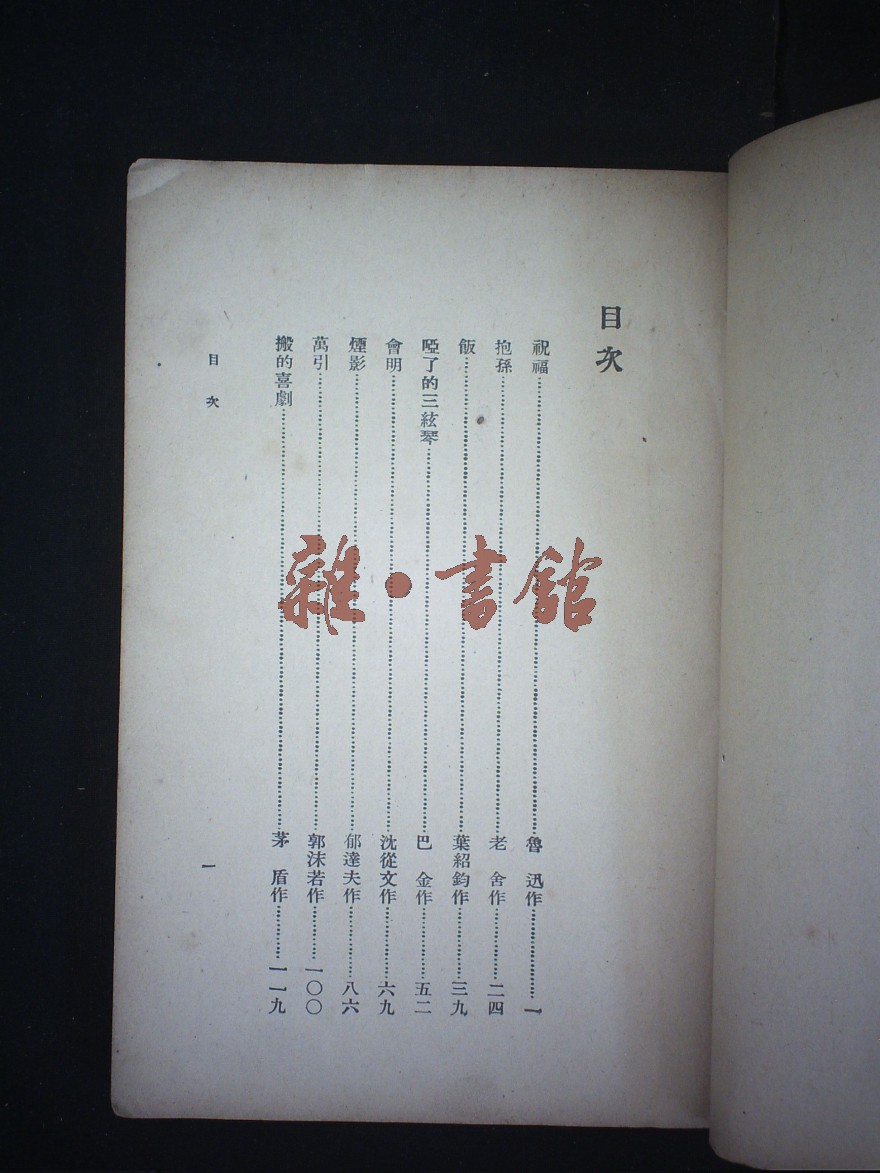 目次
祝福……魯迅作……一
抱孫……老舍作……二四
飯……葉紹鈞作……三九
啞了的三絃琴……巴金作……五二
會明……沈從文作……六九
煙影……郁達夫作……八六
萬引……郭沫若作……一〇〇
搬的喜劇……茅盾作……一一九
目次
一
雜·書館